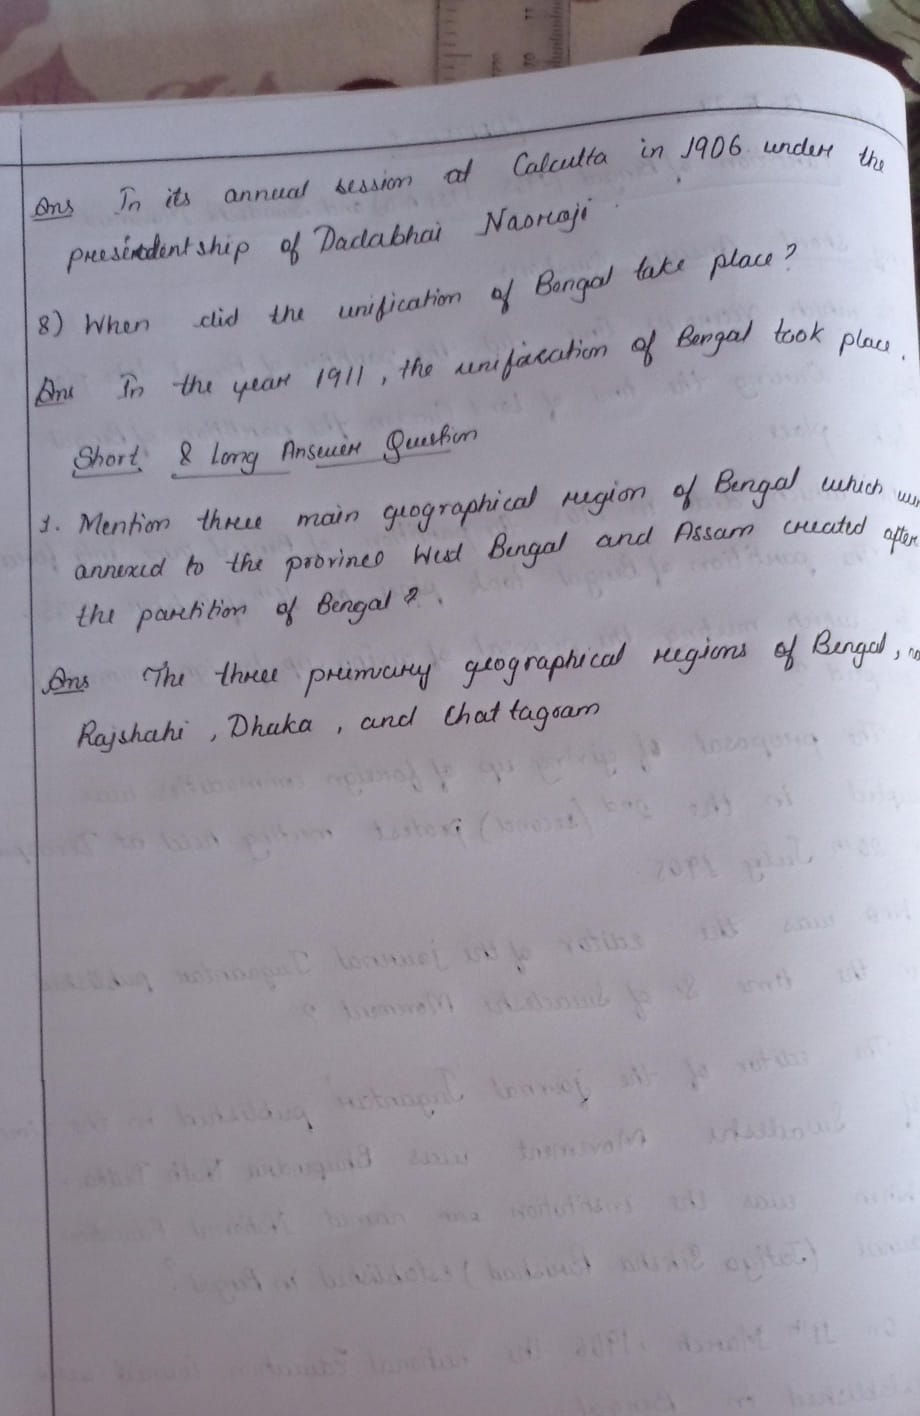 Ans In its annual session at Calcutta in 1906 under the
presindentship of Dadabhai Naoroji.
8) When did the unification of Bengal take place?
Ans In the year 1911, the unification of Bengal took place.
Short & Long Answer Question
1. Mention three main geographical region of Bengal which
annexed to the province West Bengal and Assam created after
the partition of Bengal?
Ans The three primary geographical regions of Bengal,
Rajshahi, Dhaka, and Chattagoam